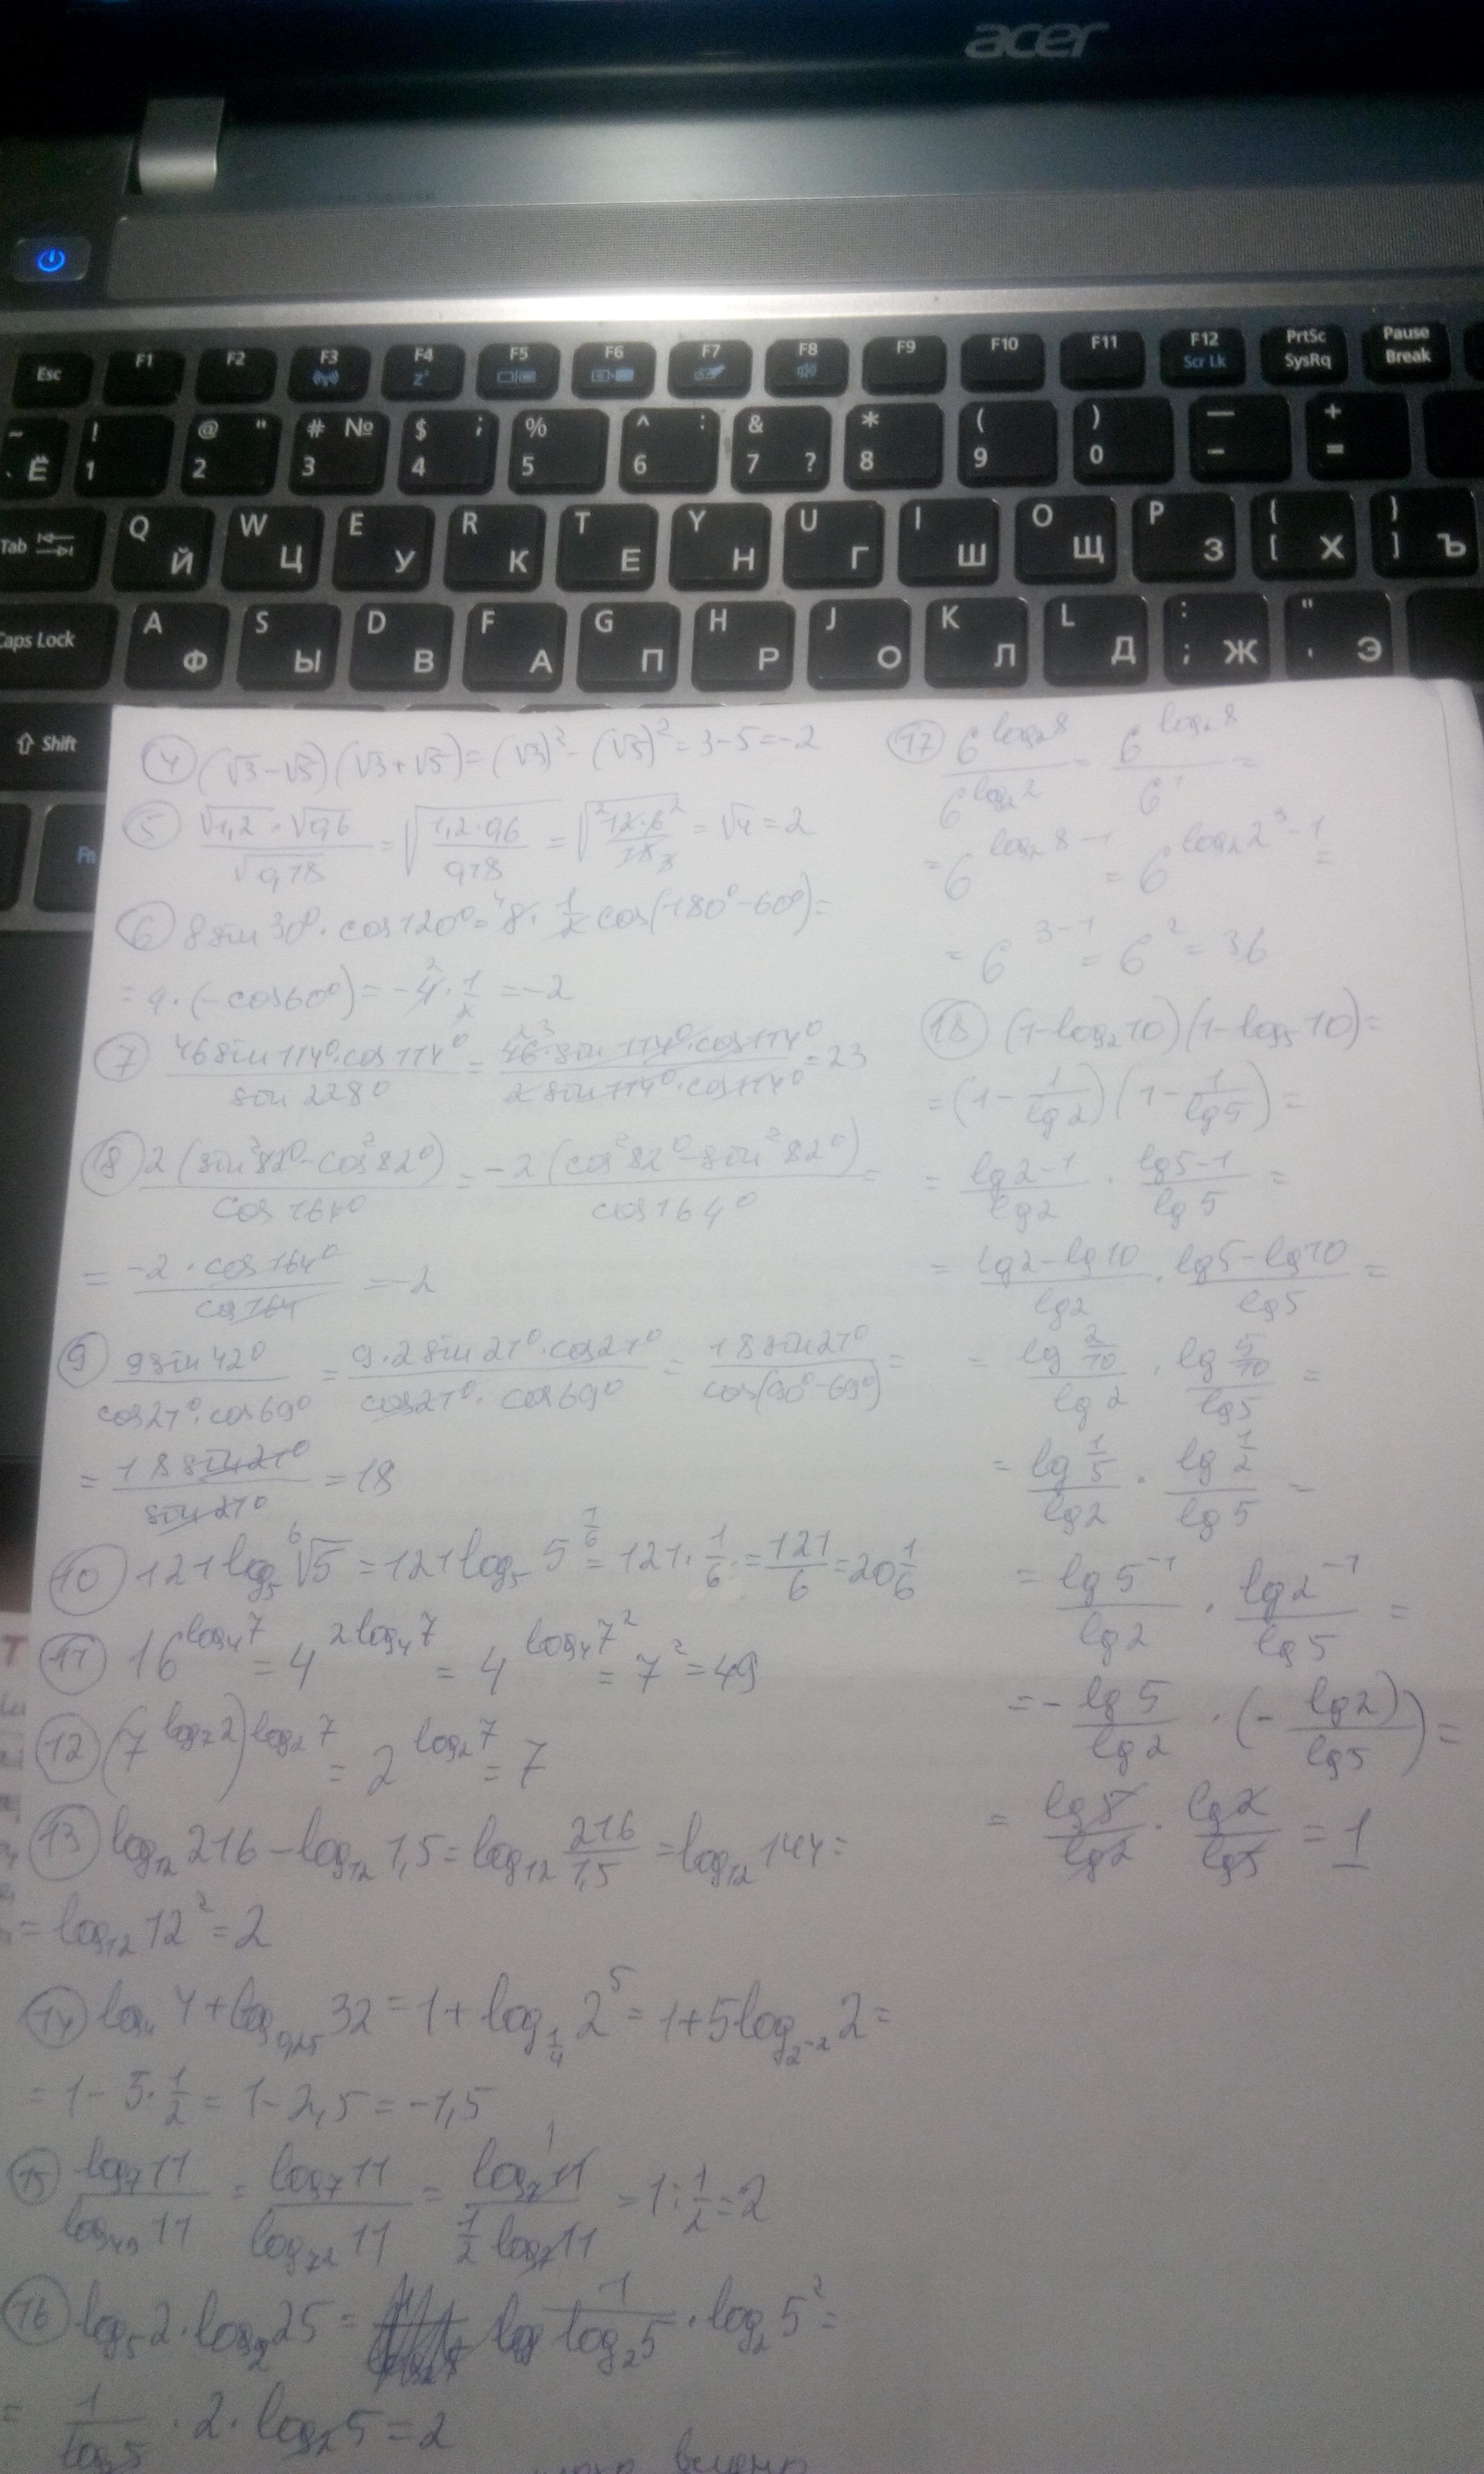 acer
Esc F1 F2 F3 F4 F5 F6 F7 F8 F9 F10 F11 F12 Scr Lk PrtSc SysRq Pause Break
~ Ё ! 1 @ " 2 # № 3 $ ; 4 % 5 ^ : 6 & 7 ? * 8 ( 9 ) 0 — - + =
Tab Q Й W Ц E У R К T Е Y Н U Г I Ш O Щ P З { [ Х } ] Ъ
Caps Lock A Ф S Ы D В F А G П H Р J О K Л L Д : ; Ж " ' Э
Shift
Fn
4 (√3-√5)(√3+√5)=(√3)²-(√5)²=3-5=-2
5 √1,2·√0,6/√0,18=√(1,2·0,6/0,18)=√(12·6/18)=√4=2
6 8sin30°·cos120°=8·1/2cos(180°-60°)=
=4·(-cos60°)=-4·1/2=-2
7 46sin114°·cos114°/sin228°=46·sin114°·cos114°/2sin114°·cos114°=23
8 2(sin²82°-cos²82°)/cos164°=-2(cos²82°-sin²82°)/cos164°=
=-2·cos164°/cos164=-2
9 9sin42°/cos21°·cos69°=9·2sin21°·cos21°/cos21°·cos69°=18sin21°/cos(90°-69°)=
=18sin21°/sin21°=18
10 121log₅⁶√5=121log₅5^(1/6)=121·1/6=121/6=20 1/6
11 16^(log₄7)=4^(2log₄7)=4^(log₄7²)=7²=49
12 (7^(log₇2))^(log₂7)=2^(log₂7)=7
13 log₁₂216-log₁₂1,5=log₁₂216/1,5=log₁₂144=
=log₁₂12²=2
14 log₄4+log₀,₂₅32=1+log_(1/4)2⁵=1+5log_(2⁻²)2=
=1-5·1/2=1-2,5=-1,5
15 log₇11/log₄₉11=log₇11/log_(7²)11=log₇11/(1/2log₇11)=1:1/2=2
16 log₅2·log₂25=1/log₂5·log₂5²=
=1/log₂5·2·log₂5=2
17 6^(log₂8)/6^(log₂2)=6^(log₂8)/6¹=
=6^(log₂8-1)=6^(log₂2³-1)=
=6^(3-1)=6²=36
18 (1-log₂10)(1-log₅10)=
=(1-1/lg2)(1-1/lg5)=
=(lg2-1)/lg2·(lg5-1)/lg5=
=(lg2-lg10)/lg2·(lg5-lg10)/lg5=
=lg2/10/lg2·lg5/10/lg5=
=lg1/5/lg2·lg1/2/lg5=
=lg5⁻¹/lg2·lg2⁻¹/lg5=
=-lg5/lg2·(-lg2/lg5)=
=lg5/lg2·lg2/lg5=1